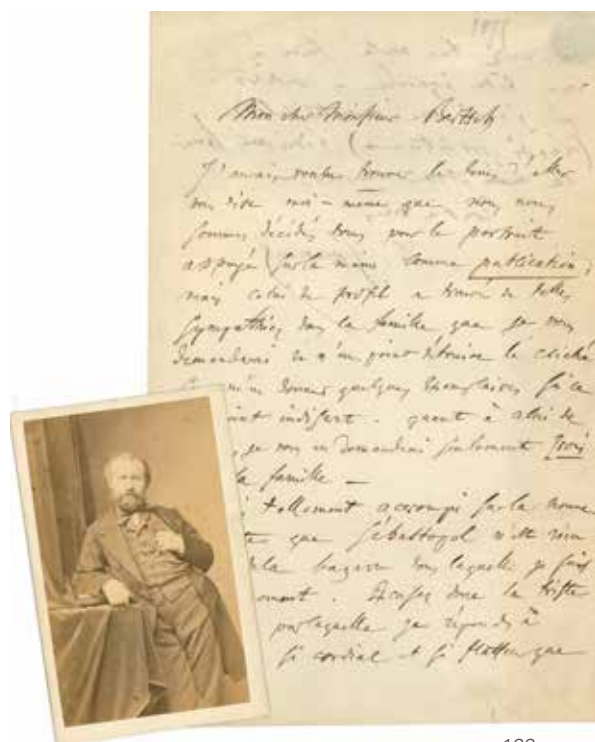 1855
Mon cher Monsieur Bertsch
J'aurais voulu trouver le tems d'aller
vous dire moi-même que nous nous
sommes décidés tous pour le portrait
appuyé sur la main comme publication,
mais celui de profil a trouvé de telles
sympathies dans la famille que je vous
demanderai de n'en point détruire le cliché
m'en donner quelques exemplaires si ce
point indiscret. quant à celui de
je vous en demanderai seulement trois
la famille —
tellement accroupi sur la
que Sébastopol n'est rien
la bagarre dans laquelle je suis
moment. Excusez donc la triste
par laquelle je réponds à
si cordial et si flatteur que